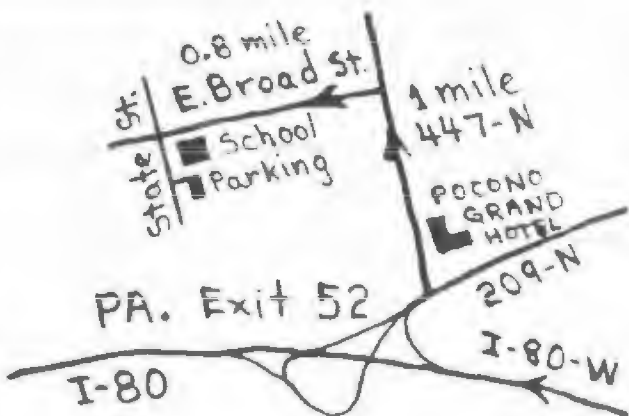 0.8 mile
E. Broad St.
1 mile
447-N
State St.
School
Parking
POCONO
GRAND
HOTEL
209-N
PA. Exit 52
I-80-W
I-80